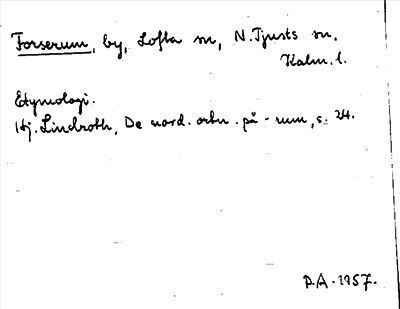 Forserum, by, Lofta sn, N. Tjusts sn,
Kalm. l.
Etymologi.
Hj. Lindroth, De nord. ortn. på -rum, s. 24.
P.A. 1957.